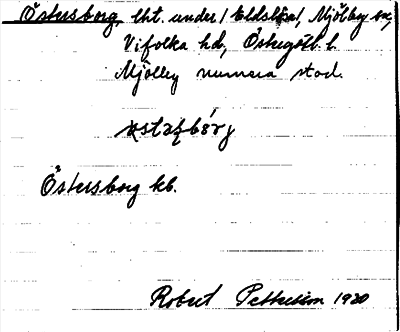 Östersborg, lht. under / Eldslösa /, Mjölby sn,
Vifolka hd, Östergötl. l.
Mjölby numera stad.
Östersborg kb.
Robert Pettersson 1920